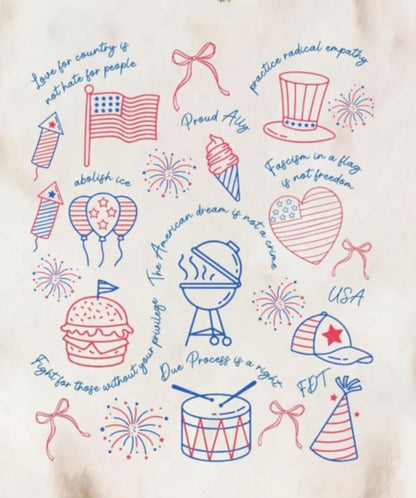 Love for country is
not hate for people
practice radical empathy
Proud Ally
Fascism in a flag
is not freedom
abolish ice
The American dream is not a crime
USA
Fight for those without your privilege
Due Process is a right
FDT